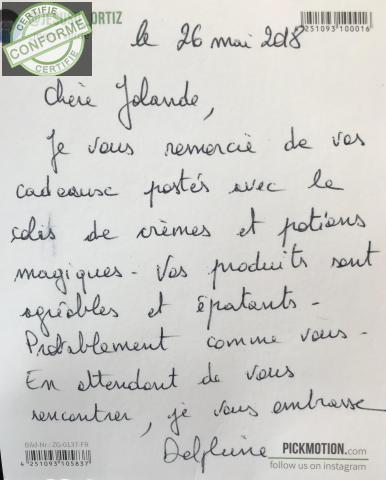 ORTIZ
4 251093 100016
CERTIFIÉ
CONFORME
CERTIFIÉ
le 26 mai 2018
Chère Jolande,
Je vous remercie de vos
cadeaux postés avec le
colis de crèmes et potions
magiques - Vos produits sont
agréables et épatants -
Probablement comme vous -
En attendant de vous
rencontrer, je vous embrasse
Delphine
Bild-Nr.: ZG-0137-FR
4 251093 105837
PICKMOTION.com
follow us on instagram